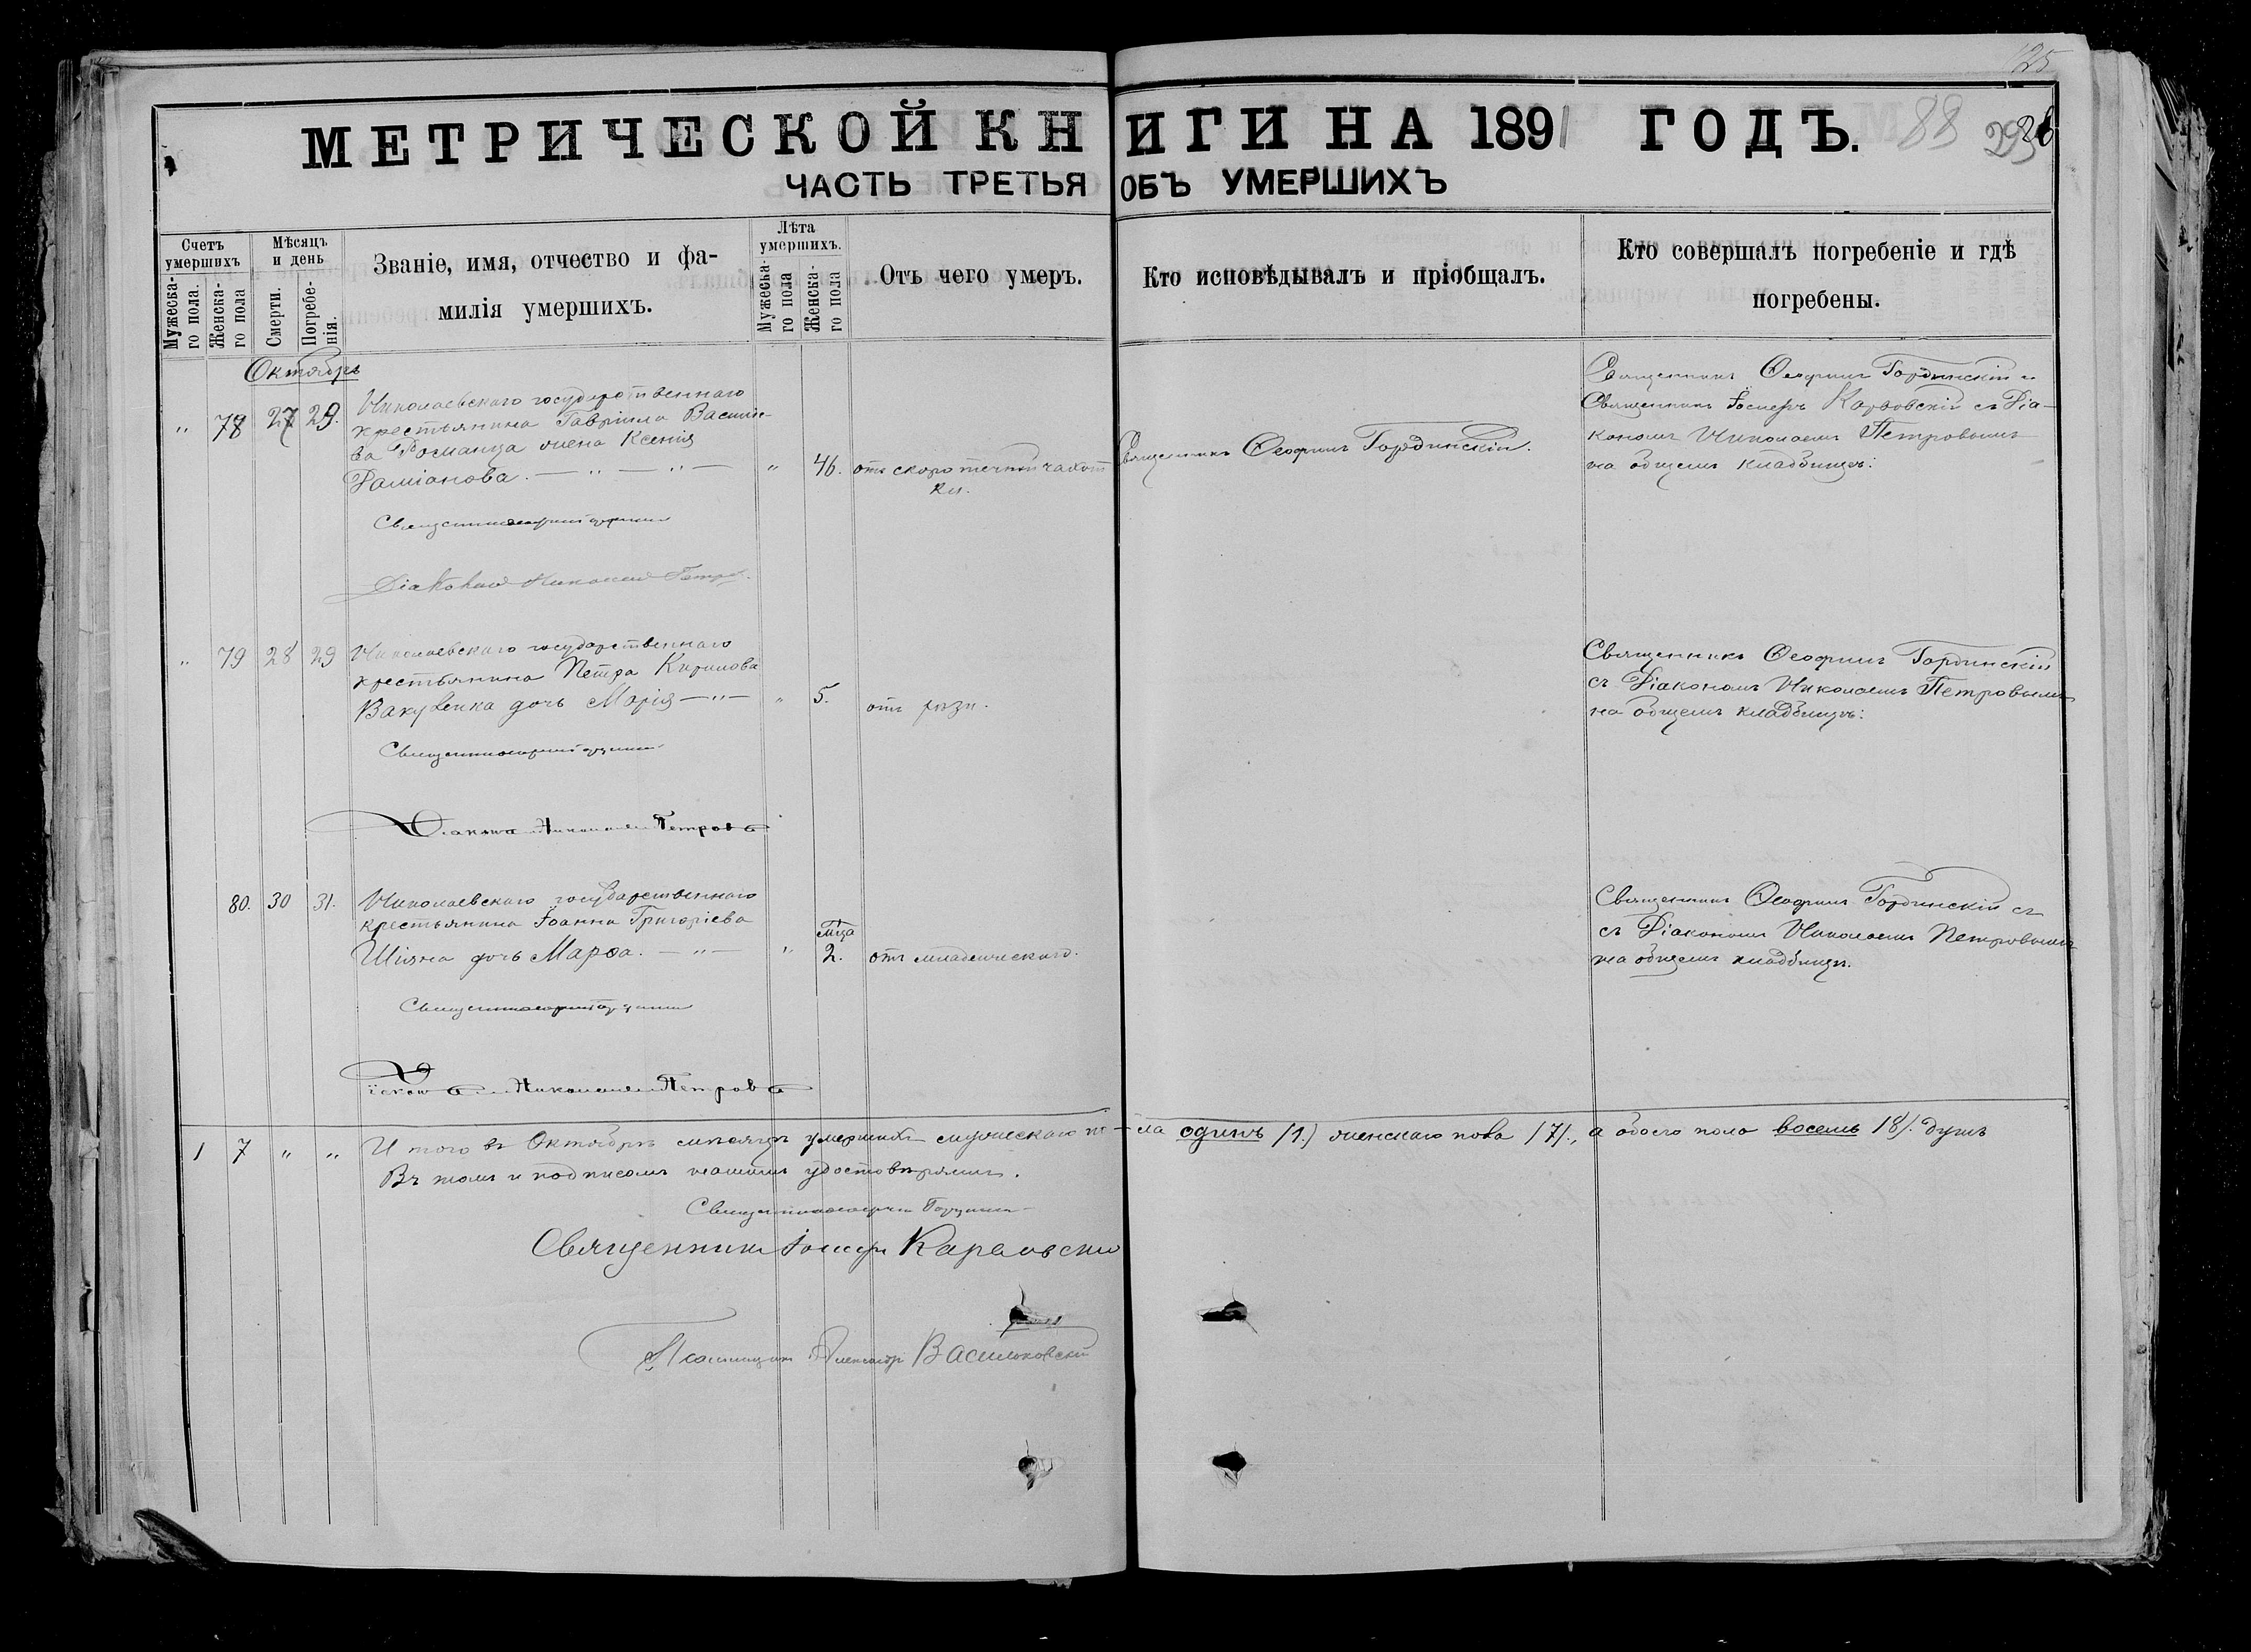 125
МЕТРИЧЕСКОЙ КНИГИ НА 1891 ГОДЪ.
88 293 28
ЧАСТЬ ТРЕТЬЯ ОБЪ УМЕРШИХЪ
Счетъ умершихъ
Мужеска-го пола.
Женска-го пола
Мѣсяцъ и день
Смерти.
Погребе-нія.
Званіе, имя, отчество и фа-
милія умершихъ.
Лѣта умершихъ.
Мужеска-го пола
Женска-го пола
Отъ чего умеръ.
Кто исповѣдывалъ и пріобщалъ.
Кто совершалъ погребеніе и гдѣ
погребены.
Октябрь
" 78 27 29.
Николаевскаго государственнаго
крестьянина Гавріила Василіе-
ва Романца жена Ксенія
Даміанова. — " — " —
" 46.
отъ скоротечной чахот
ки.
Священникъ Ѳеофилъ Гординскій.
Священникъ Ѳеофилъ Гординскій и
Священникъ Іосифъ Карповскій съ Діа-
кономъ Николаемъ Петровымъ
на общемъ кладбищѣ:
Діаконъ Николай Петр
" 79 28 29
Николаевскаго государственнаго
крестьянина Петра Кирилова
Вакуленка дочь Марія — " —
" 5.
отъ
Священникъ Ѳеофилъ Гординскій
съ Діакономъ Николаемъ Петровымъ
на общемъ кладбищѣ:
Діаконъ Николай Петровъ
80. 30 31.
Николаевскаго государственнаго
крестьянина Іоанна Григоріева
Шіяна дочь Марѳа. — " —
" мца 2.
отъ младенческаго.
Священникъ Ѳеофилъ Гординскій съ
съ Діакономъ Николаемъ Петровымъ
на общемъ кладбищѣ.
Діаконъ Николай Петровъ
1 7 " "
И того въ Октябрѣ мѣсяцѣ умершихъ мужескаго по-ла одинъ /1.) женскаго пола /7/., а обоего пола восемь /8/. душъ
Въ томъ и подписомъ нашимъ удостовѣряемъ.
Священникъ Іосифъ Карповскій
Псаломщикъ Александръ Васильковскій